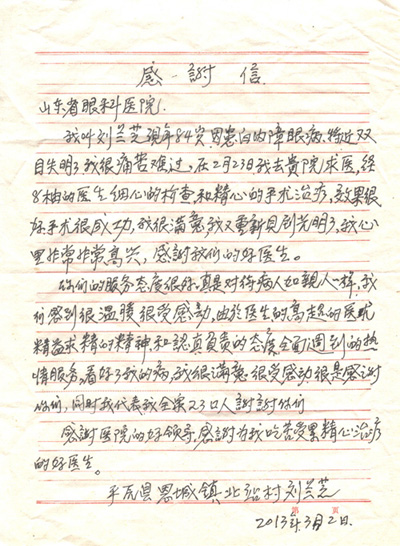 感謝信
山东省眼科医院.
我叫刘兰芝現年84岁,因患白内障眼病,將近双
目失明了我很痛苦难过,在2月23日我去貴院求医,经
8柚的医生细心的检查和精心的手术治疗,效果很
好手术很成功,我很满意,我又重新見到光明了,我心
里非常非常高兴,感謝我们的好医生。
你们的服务态度很好,真是对待病人如親人一样,我
们感到很温暖很受感动,由於医生的高超的医術
精益求精的精神和認真負責的态度全面週到的热
情服务,看好了我的病,我很满意很受感动很是感谢
你们,同时我代表我全家23口人謝謝你们
感謝医院的好领导,感謝为我吃苦受累精心治疗
的好医生。
平原县恩城镇北 村刘兰芝
第 页
2013年3月2日.